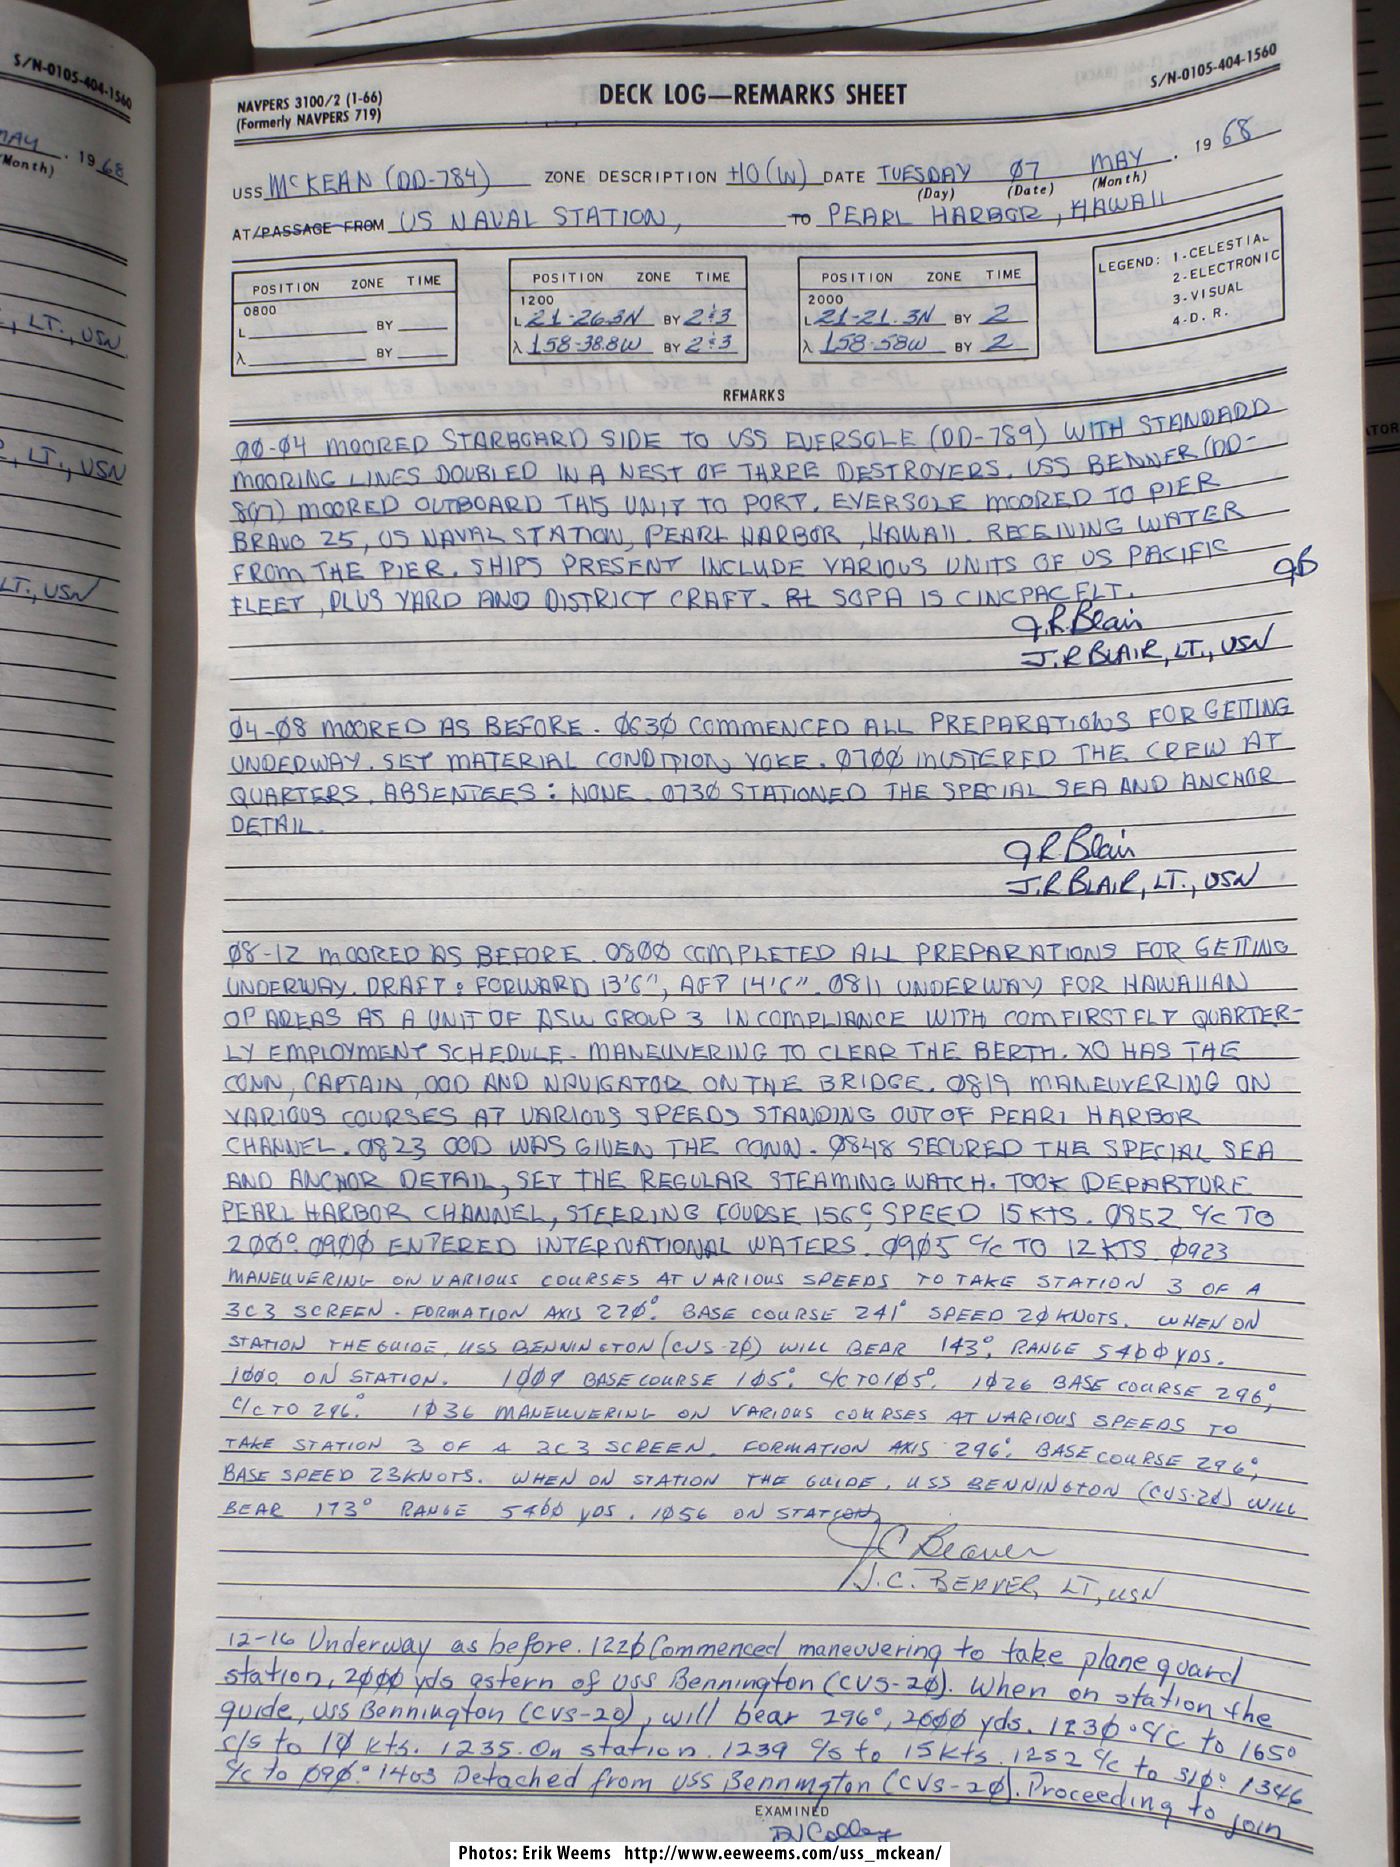 S/N-0105-404-1560
MAY
19 68
(Month)
LT., USN
LT., USN
LT., USN
NAVPERS 3100/2 (1-66)
(Formerly NAVPERS 719)
DECK LOG—REMARKS SHEET
S/N-0105-404-1560
USS McKEAN (DD-784) ZONE DESCRIPTION +10 (W) DATE TUESDAY 07 MAY . 19 68
(Day) (Date) (Month)
AT/PASSAGE FROM US NAVAL STATION, TO PEARL HARBOR, HAWAII
POSITION ZONE TIME
0800
L BY
λ BY
POSITION ZONE TIME
1200
L 21-26.3N BY 2&3
λ 158-38.8W BY 2&3
POSITION ZONE TIME
2000
L 21-21.3N BY 2
λ 158-58W BY 2
LEGEND: 1-CELESTIAL
2-ELECTRONIC
3-VISUAL
4-D. R.
REMARKS
00-04 MOORED STARBOARD SIDE TO USS EVERSOLE (DD-789) WITH STANDARD
MOORING LINES DOUBLED IN A NEST OF THREE DESTROYERS. USS BENNER (DD-
807) MOORED OUTBOARD THIS UNIT TO PORT. EVERSOLE MOORED TO PIER
BRAVO 25, US NAVAL STATION, PEARL HARBOR, HAWAII. RECEIVING WATER
FROM THE PIER. SHIPS PRESENT INCLUDE VARIOUS UNITS OF US PACIFIC
FLEET, PLUS YARD AND DISTRICT CRAFT. SOPA IS CINCPACFLT.
JB
J.R. Blair
J.R BLAIR, LT., USN
04-08 MOORED AS BEFORE. 0630 COMMENCED ALL PREPARATIONS FOR GETTING
UNDERWAY. SET MATERIAL CONDITION YOKE. 0700 MUSTERED THE CREW AT
QUARTERS. ABSENTEES: NONE. 0730 STATIONED THE SPECIAL SEA AND ANCHOR
DETAIL.
J.R. Blair
J.R BLAIR, LT., USN
08-12 MOORED AS BEFORE. 0800 COMPLETED ALL PREPARATIONS FOR GETTING
UNDERWAY. DRAFT: FORWARD 13'6", AFT 14'6". 0811 UNDERWAY FOR HAWAIIAN
OP AREAS AS A UNIT OF ASW GROUP 3 IN COMPLIANCE WITH COMFIRSTFLT QUARTER-
LY EMPLOYMENT SCHEDULE. MANEUVERING TO CLEAR THE BERTH. XO HAS THE
CONN, CAPTAIN, OOD AND NAVIGATOR ON THE BRIDGE. 0819 MANEUVERING ON
VARIOUS COURSES AT VARIOUS SPEEDS STANDING OUT OF PEARL HARBOR
CHANNEL. 0823 OOD WAS GIVEN THE CONN. 0848 SECURED THE SPECIAL SEA
AND ANCHOR DETAIL, SET THE REGULAR STEAMING WATCH. TOOK DEPARTURE
PEARL HARBOR CHANNEL, STEERING COURSE 156°, SPEED 15 KTS. 0852 C/C TO
200°. 0900 ENTERED INTERNATIONAL WATERS. 0905 C/C TO 12 KTS. 0923
MANEUVERING ON VARIOUS COURSES AT VARIOUS SPEEDS TO TAKE STATION 3 OF A
3C3 SCREEN. FORMATION AXIS 270°. BASE COURSE 241° SPEED 20 KNOTS. WHEN ON
STATION THE GUIDE, USS BENNINGTON (CVS-20) WILL BEAR 143°, RANGE 5400 YDS.
1000 ON STATION. 1009 BASE COURSE 105°. C/C TO 105°. 1026 BASE COURSE 296°,
C/C TO 296°. 1036 MANEUVERING ON VARIOUS COURSES AT VARIOUS SPEEDS TO
TAKE STATION 3 OF A 3C3 SCREEN. FORMATION AXIS 296°. BASE COURSE 296°,
BASE SPEED 23 KNOTS. WHEN ON STATION THE GUIDE, USS BENNINGTON (CVS-20) WILL
BEAR 173° RANGE 5400 YDS. 1056 ON STATION
J C Beaver
J. C. BEAVER, LT, USN
12-16 Underway as before. 1220 Commenced maneuvering to take plane guard
station, 2000 yds astern of USS Bennington (CVS-20). When on station the
guide, USS Bennington (CVS-20), will bear 296°, 2000 yds. 1230 C/C to 165°
C/S to 10 kts. 1235. On station. 1239 C/S to 15 kts. 1252 C/C to 310°. 1346
C/C to 090°. 1403 Detached from USS Bennington (CVS-20). Proceeding to join
EXAMINED
Photos: Erik Weems http://www.eeweems.com/uss_mckean/